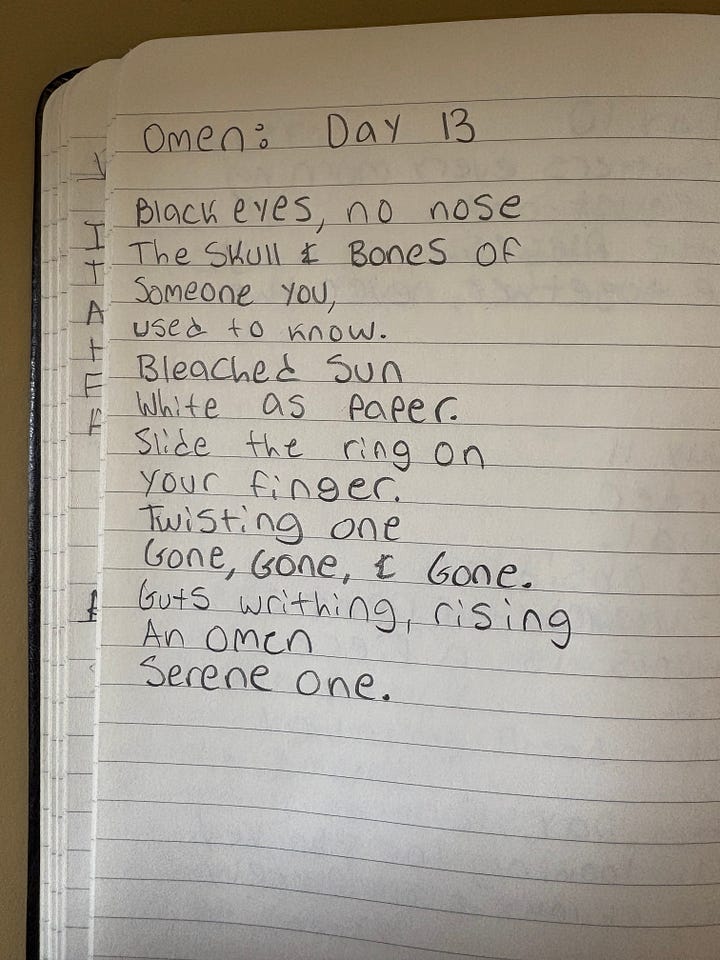 Omen: Day 13
Black eyes, no nose
The Skull & Bones of
Someone you,
used to know.
Bleached Sun
White as paper.
Slide the ring on
your finger.
Twisting one
Gone, Gone, & Gone.
Guts writhing, rising
An omen
Serene one.